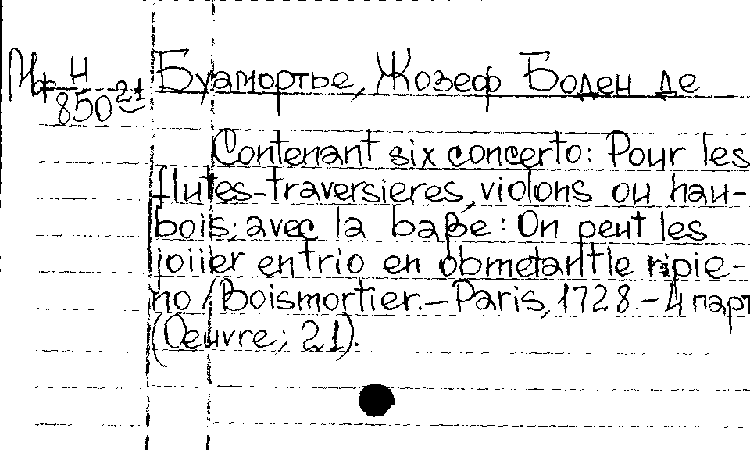 Н
850 21
Буамортье, Жозеф Боден де
Contenant six concerto: Pour les
flutes-traversieres, violons ou hau-
bois, avec la baße: On peut les
joiier entrio en obmetantle ripie-
no / Boismortier. – Paris, 1728. – 4 парт
(Oeuvre; 21).